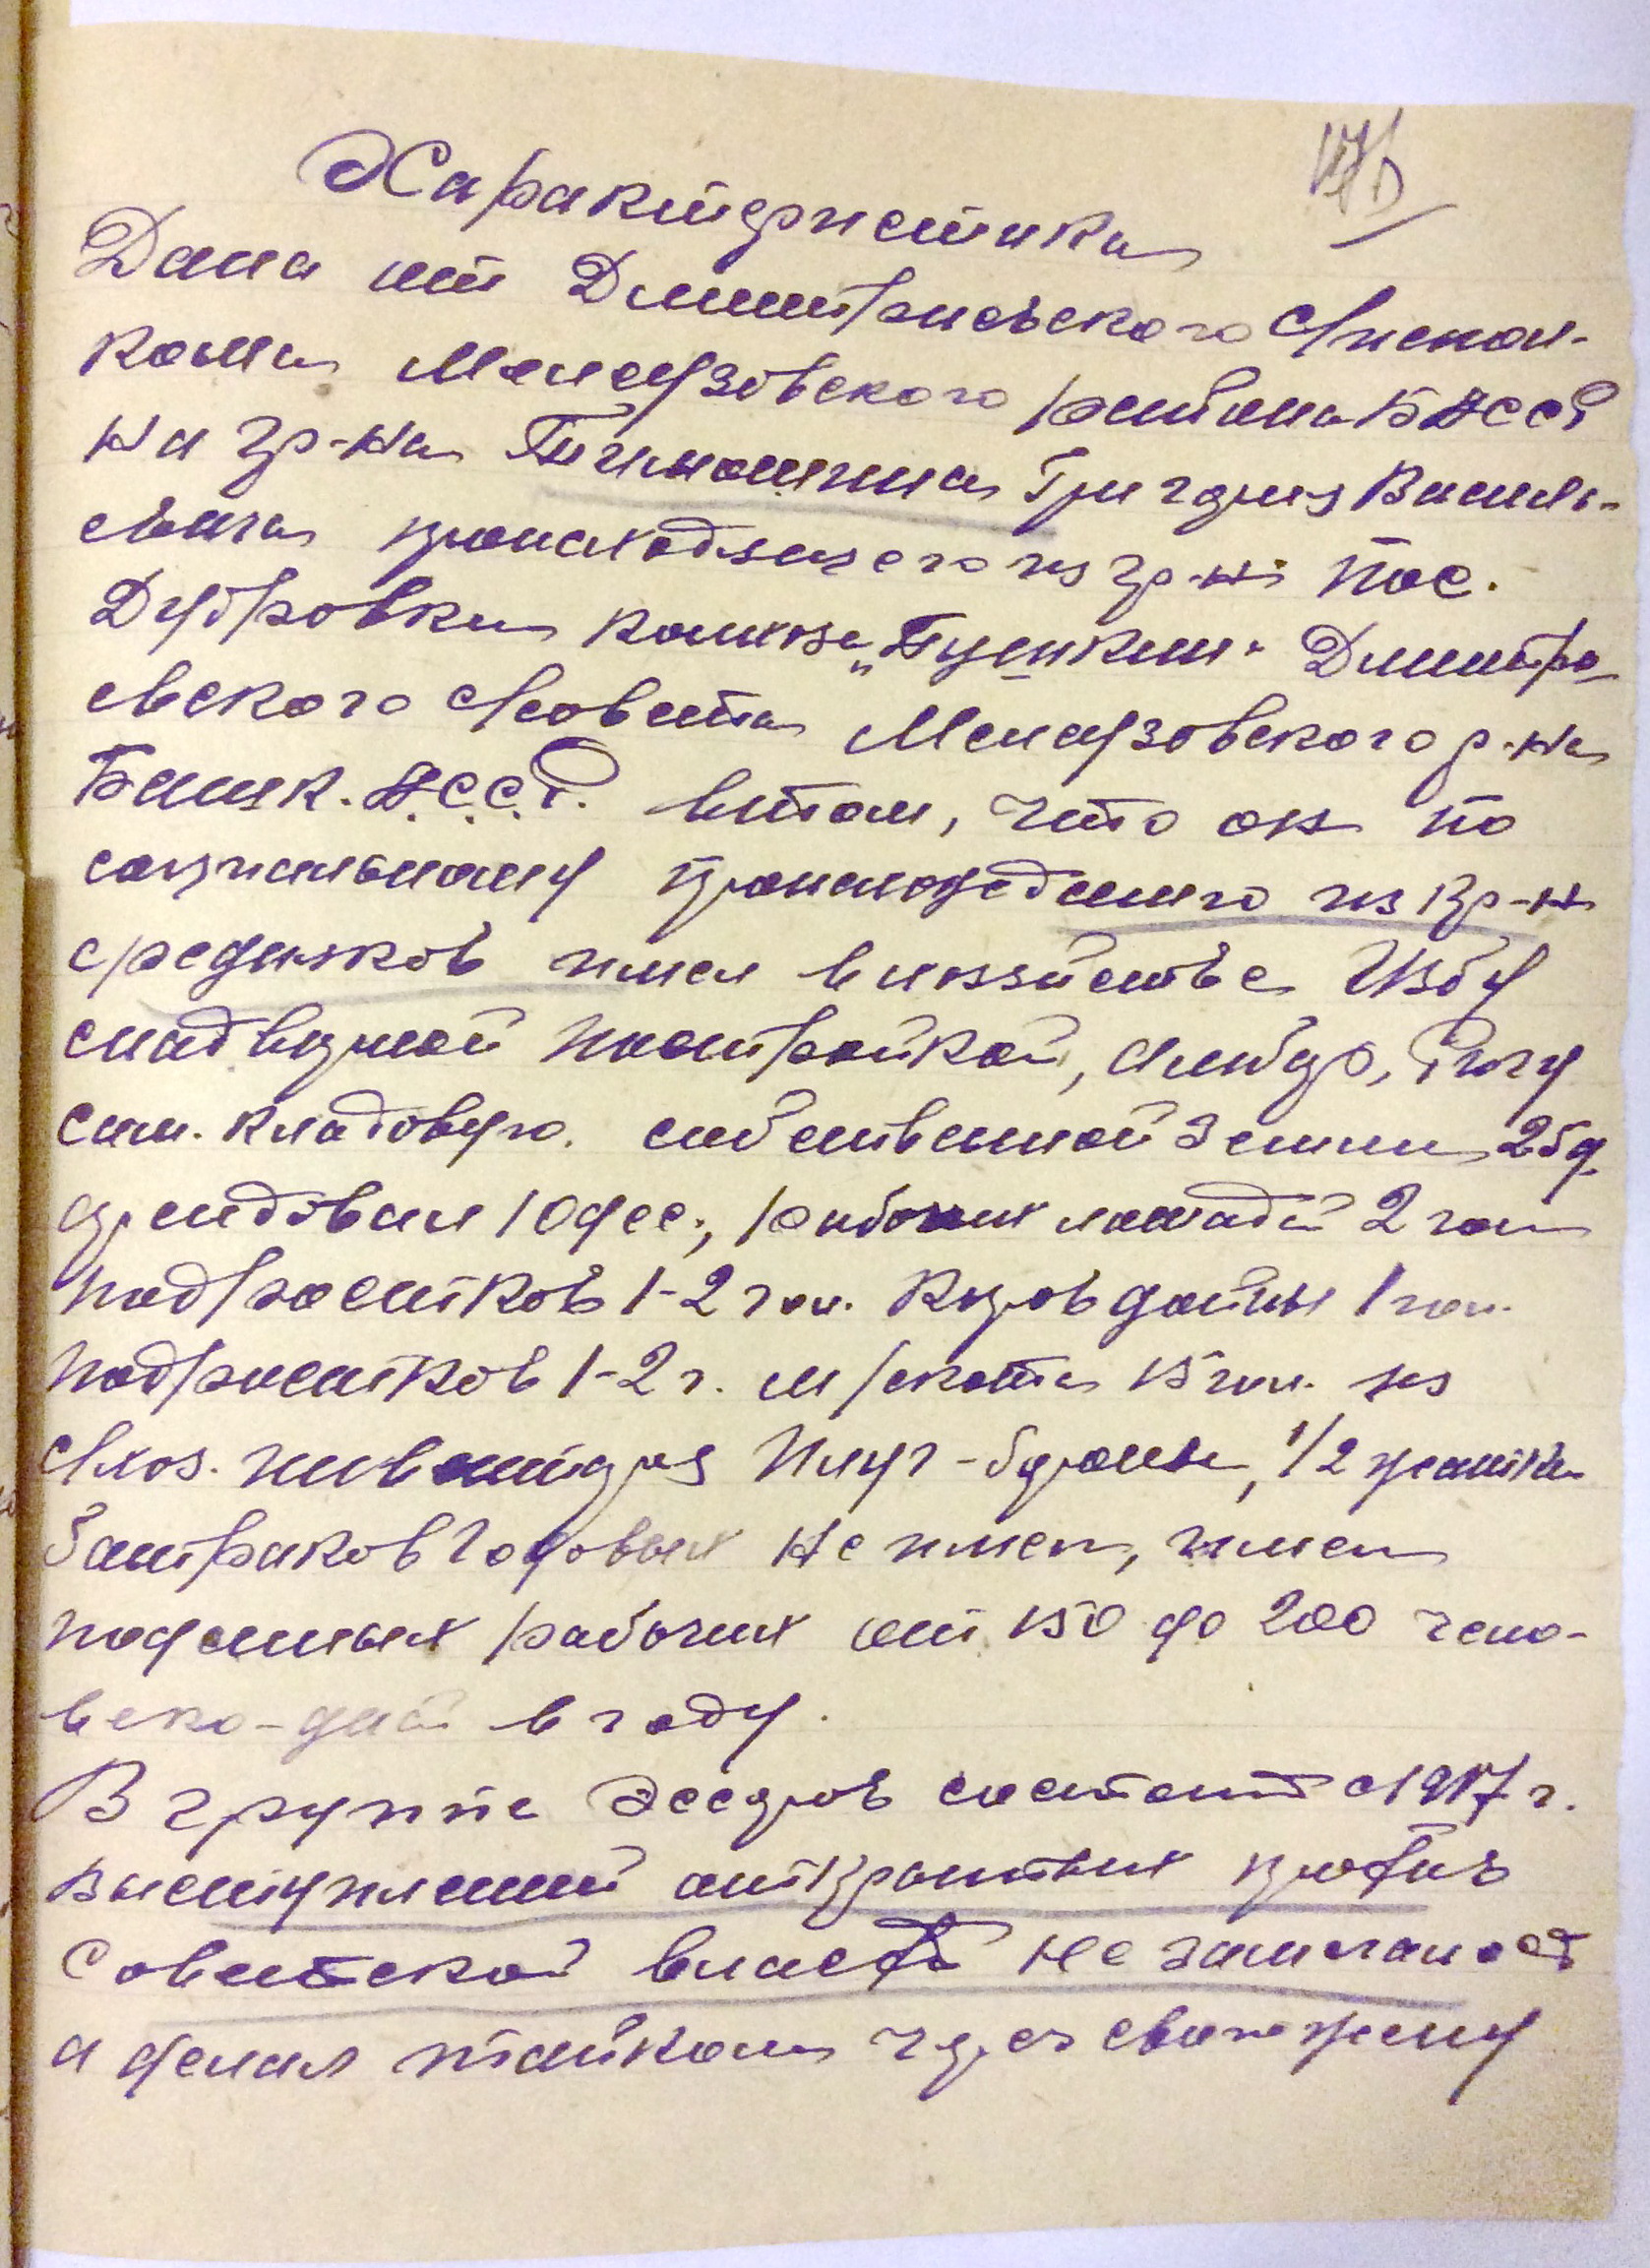 Характеристика
Дана от Дмитриевского с/испол-
кома Мелеузовского района БАССР
на гр-на Тимошина Григория Василь-
евича происходящего из гр-н пос.
Дубровки колхоза „Пушкин" Дмитри-
евского с/совета Мелеузовского р-на
Башк. А.С.С.Р. в том, что он по
социальному происхождению из кр-н
средняков имел в хозяйстве Избу
с надворной постройкой, Амбар, Ригу
сам. кладовую. собственной земли 25 д.
арендовал 10 дес., рабочих лошадей 2 гол
подростков 1-2 гол. Коров дойных 1 гол.
подростков 1-2 г. м/скота 15 гол. из
с/хоз. инвентаря плуг - бороны, 1/2 жатки
Батраков годовых не имел, имел
поденных рабочих от 150 до 200 чело-
веко-дней в году.
В группе Эсеров состоит с 1917 г.
выступлений открытых против
Советской власти не замечалось
а делал тайком через свою жену